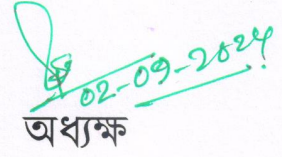 02-09-2024
অধ্যক্ষ